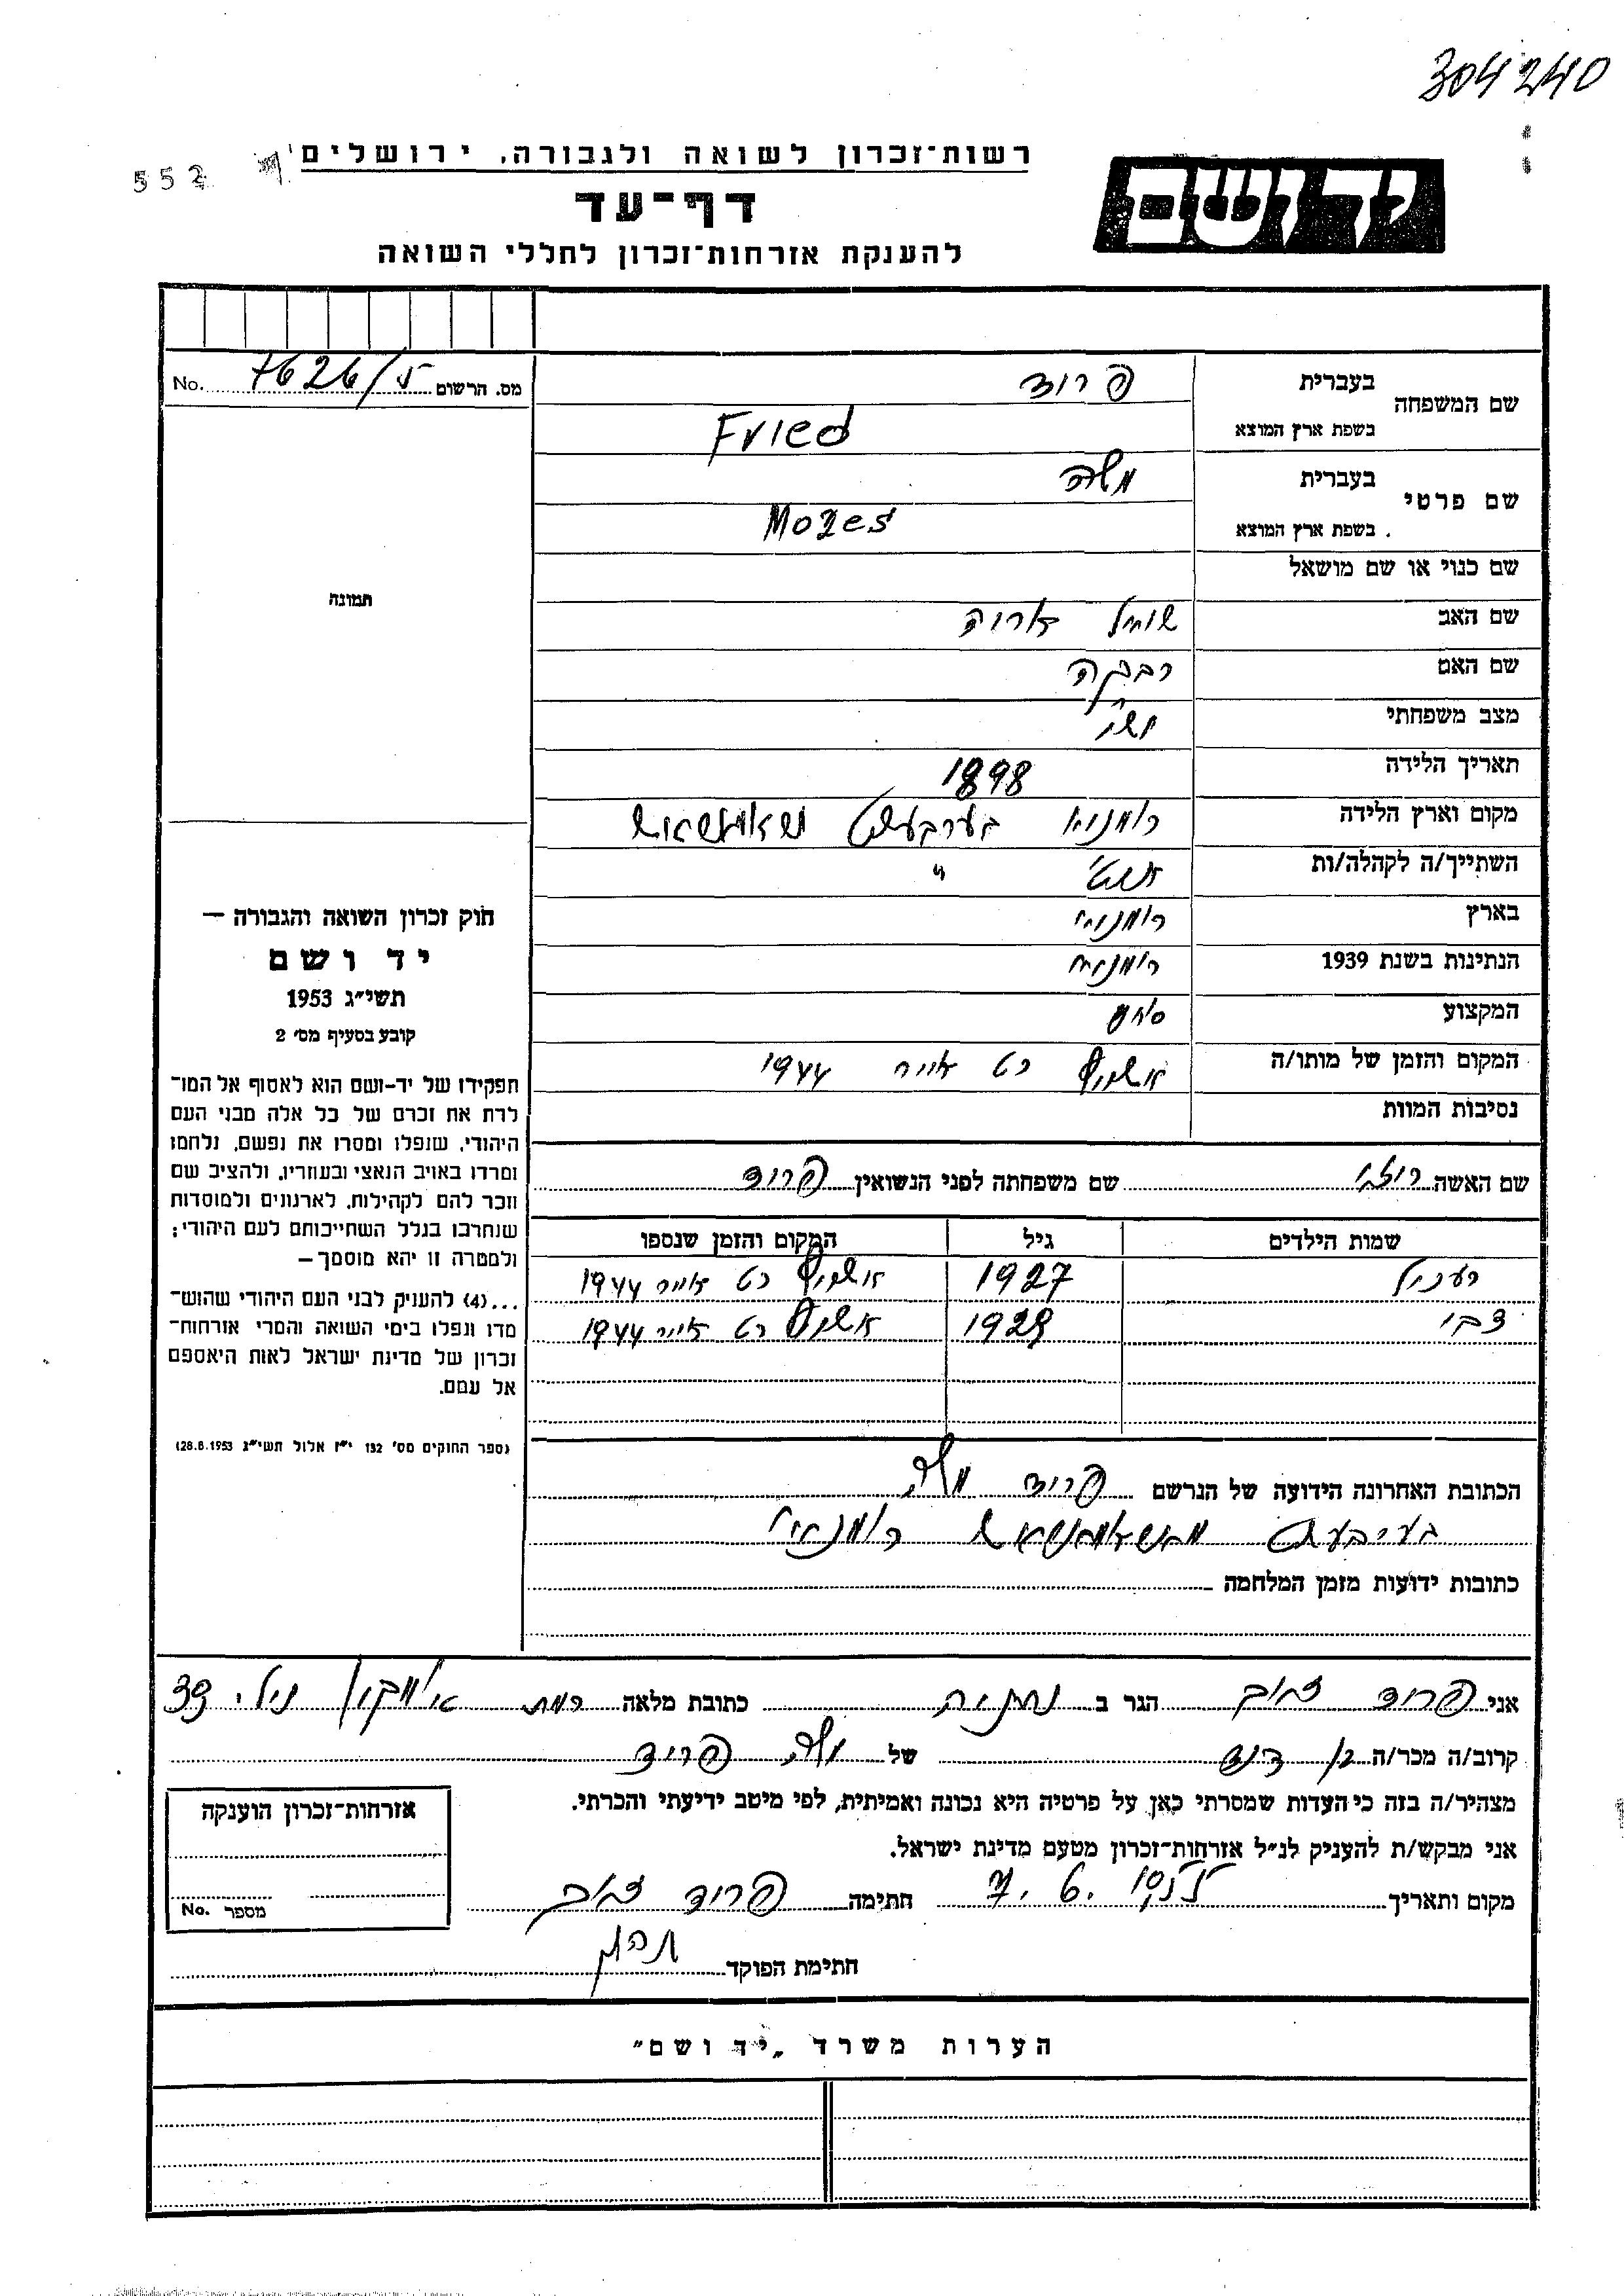 304240
רשות־זכרון לשואה ולגבורה, ירושלים
552
יד ושם
דף־עד
להענקת אזרחות־זכרון לחללי השואה
שם המשפחה
בעברית פריד
בשפת ארץ המוצא Fried
מס. הרשום No.
שם פרטי
בעברית משה
בשפת ארץ המוצא Mozes
שם כנוי או שם מושאל
תמונה
שם האב שמואל אריה
שם האם רבקה
מצב משפחתי נשוי
תאריך הלידה 1898
מקום וארץ הלידה רומניא
השתייך/ה לקהלה/ות "
בארץ רומניה
הנתינות בשנת 1939 רומניה
המקצוע סוחר
המקום והזמן של מותו/ה אושויץ כט אייר 1944
נסיבות המוות
חוק זכרון השואה והגבורה —
יד ושם
תשי״ג 1953
קובע בסעיף מס׳ 2
תפקידו של יד-ושם הוא לאסוף אל המו־
לדת את זכרם של כל אלה מבני העם
היהודי, שנפלו ומסרו את נפשם, נלחמו
ומרדו באויב הנאצי ובעוזריו, ולהציב שם
וזכר להם לקהילות, לארגונים ולמוסדות
שנחרבו בגלל השתייכותם לעם היהודי;
ולמטרה זו יהא מוסמך—
...(4) להעניק לבני העם היהודי שהוש־
מדו ונפלו בימי השואה והמרי אזרחות־
זכרון של מדינת ישראל לאות היאספם
אל עמם.
(ספר החוקים מס׳ 132 י״ז אלול תשי״ג 28.8.1953)
שם האשה שם משפחתה לפני הנשואין פריד
שמות הילדים גיל המקום והזמן שנספו
1927 אושויץ כט אייר 1944
צבי 1929 אושויץ כט אייר 1944
הכתובת האחרונה הידועה של הנרשם פריד משה
רומניא
כתובות ידועות מזמן המלחמה
אני פריד הגר ב נתניה כתובת מלאה רמת
קרוב/ה מכר/ה בן דוד של משה פריד
מצהיר/ה בזה כי העדות שמסרתי כאן על פרטיה היא נכונה ואמיתית, לפי מיטב ידיעתי והכרתי.
אני מבקש/ת להעניק לנ״ל אזרחות־זכרון מטעם מדינת ישראל.
מקום ותאריך חתימה פריד
חתימת הפוקד
אזרחות־זכרון הוענקה
מספר No.
הערות משרד „יד ושם״